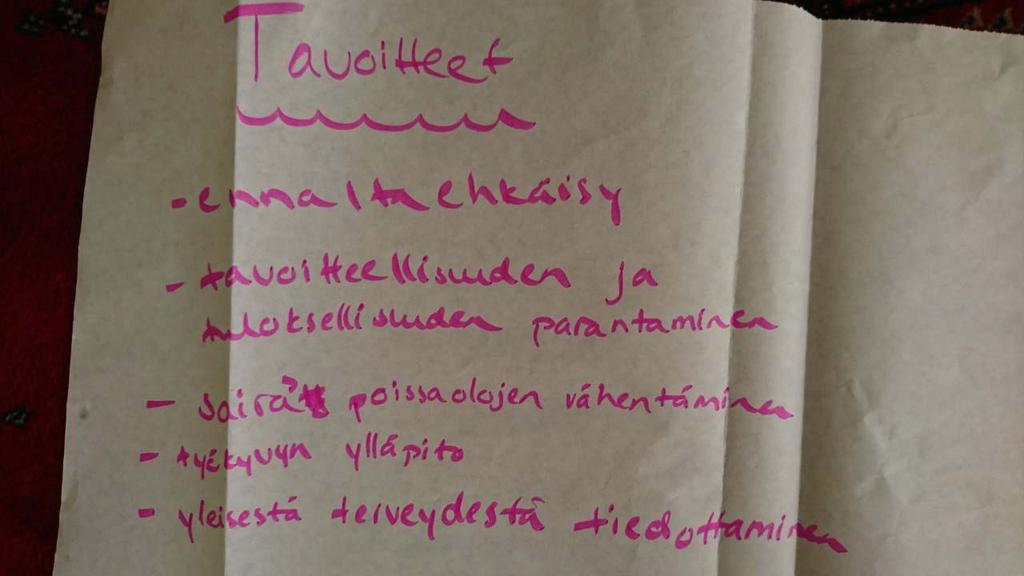 Tavoitteet
- ennaltaehkäisy
- tavoitteellisuuden ja
tuloksellisuuden parantaminen
- poissaolojen vähentäminen
- työkyvyn ylläpito
- yleisestä terveydestä tiedottaminen